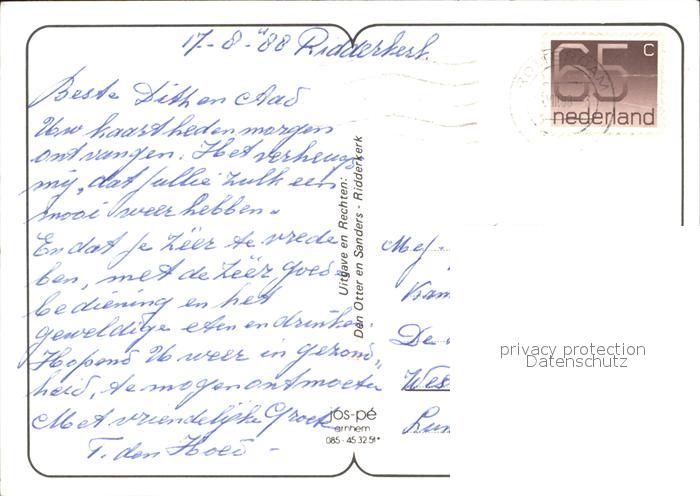 17-8-'88 Ridderkerk.
Beste Dith en Aad
Uw kaart heden morgen
ontvangen. Het verheugt
mij, dat jullie zulk een
mooi weer hebben.
En dat je zéér te vrede
ben, met de zéér goede
bediening en het
geweldige eten en drinken.
Hopend U weer in gezond„
heid, te mogen ontmoeten
Met vriendelijke Groet
T. den Hoed -
Uitgave en Rechten:
Den Otter en Sanders - Ridderkerk
jos-pé
arnhem
085-453251*
65 c
nederland
ROTTERDAM
De
Wes
privacy protection
Datenschutz